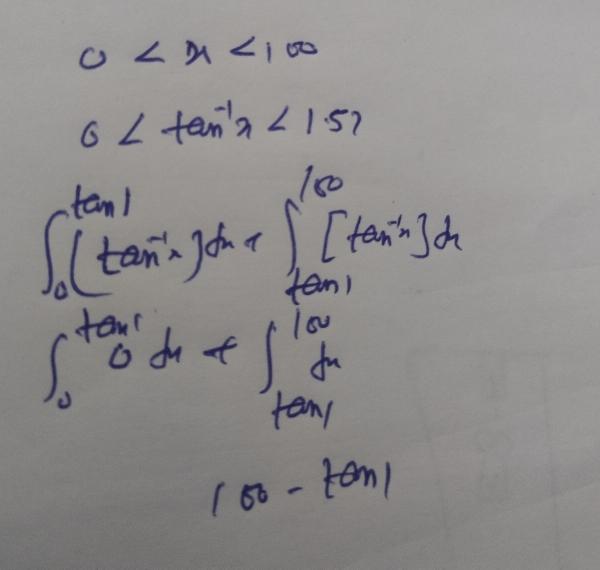 0 < x < 100
0 < tan⁻¹x < 1.57
∫₀^{tan1} [tan⁻¹x] dx + ∫_{tan1}^{100} [tan⁻¹x] dx
∫₀^{tan1} 0 dx + ∫_{tan1}^{100} dx
100 - tan1